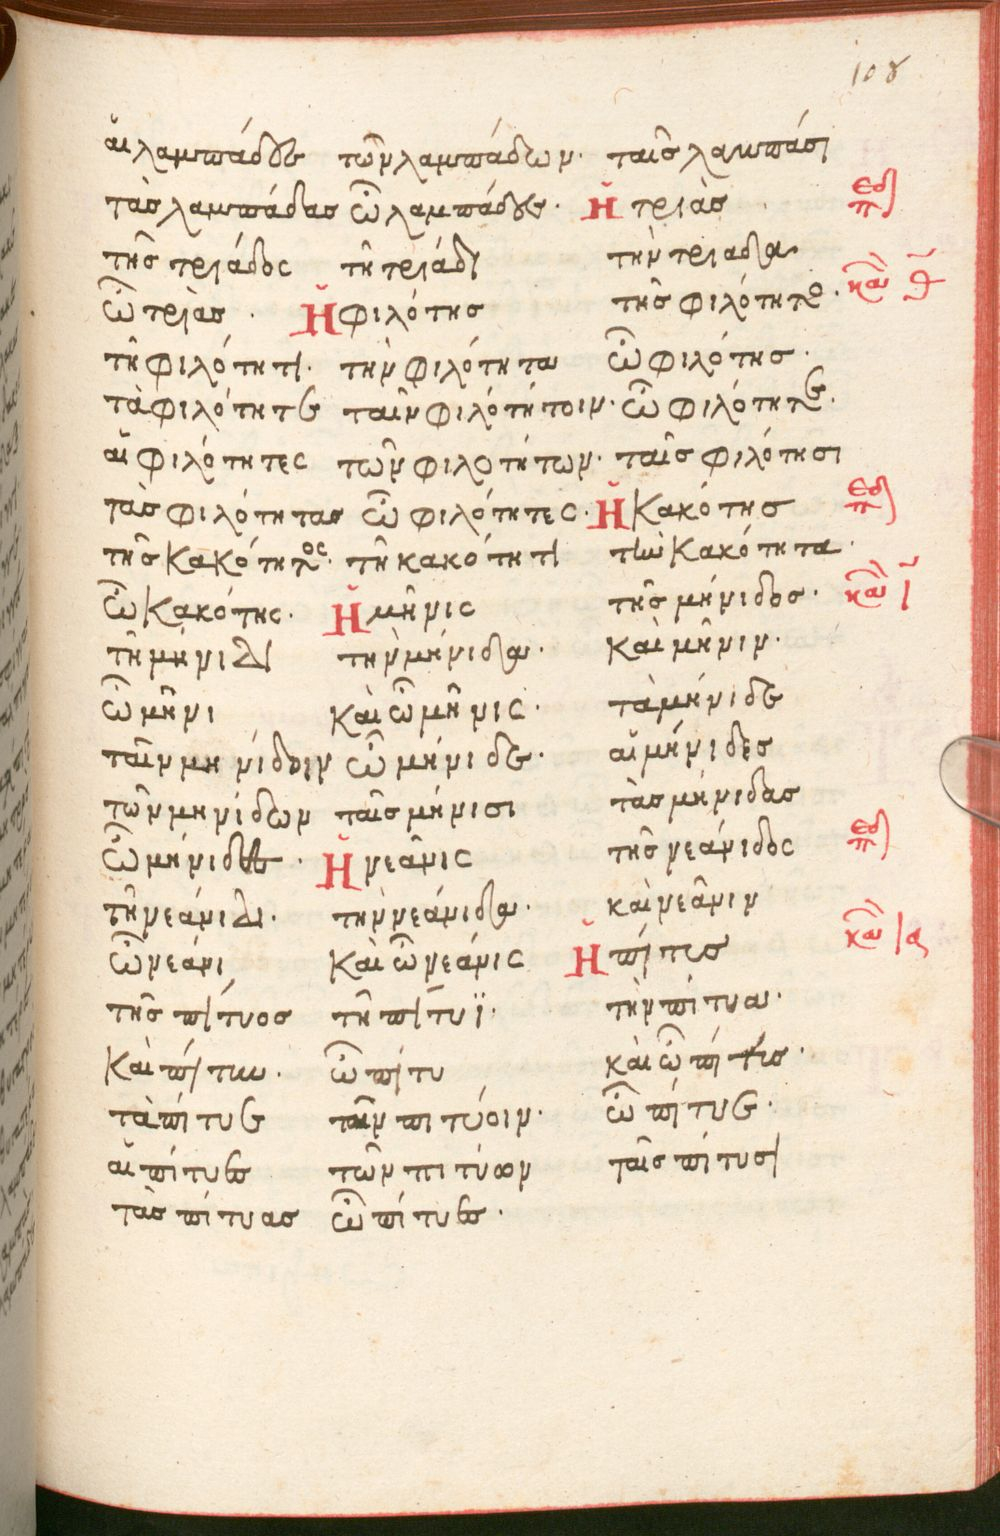 108
αἱ λαμπάδες τῶν λαμπάδων· ταῖς λαμπάσι
τὰς λαμπάδας ὦ λαμπάδες· Ἡ τριὰς
τῆς τριάδος τῆ τριάδι τὴν τριάδα
ὦ τριὰς · Ἡ φιλότης τῆς φιλότητος· κανὼν θ
τῆ φιλότητι· τὴν φιλότητα ὦ φιλότης·
τὰ φιλότητε ταῖν φιλοτήτοιν· ὦ φιλότητε·
αἱ φιλότητες τῶν φιλοτήτων· ταῖς φιλότησι
τὰς φιλότητας ὦ φιλότητες· Ἡ κακότης
τῆς κακότητος· τῆ κακότητι τὴν κακότητα·
ὦ κακότης· Ἡ μῆνις τῆς μήνιδος· κανὼν ι
τῆ μήνιδι τὴν μήνιδα· καὶ μῆνιν·
ὦ μῆνι καὶ ὦ μῆνις· τὰ μήνιδε
ταῖν μηνίδοιν ὦ μήνιδε· αἱ μήνιδες
τῶν μηνίδων ταῖς μήνισι τὰς μήνιδας
ὦ μήνιδες · Ἡ νεᾶνις τῆς νεάνιδος
τῆ νεάνιδι· τὴν νεάνιδα· καὶ νεᾶνιν
ὦ νεάνι καὶ ὦ νεάνις Ἡ πίτυς κανὼν ια
τῆς πίτυος τῆ πίτυϊ· τὴν πίτυα·
καὶ πίτυν· ὦ πίτυ καὶ ὦ πίτυς·
τὰ πίτυε ταῖν πιτύοιν· ὦ πίτυε·
αἱ πίτυες τῶν πιτύων ταῖς πίτυσι
τὰς πίτυας ὦ πίτυες·